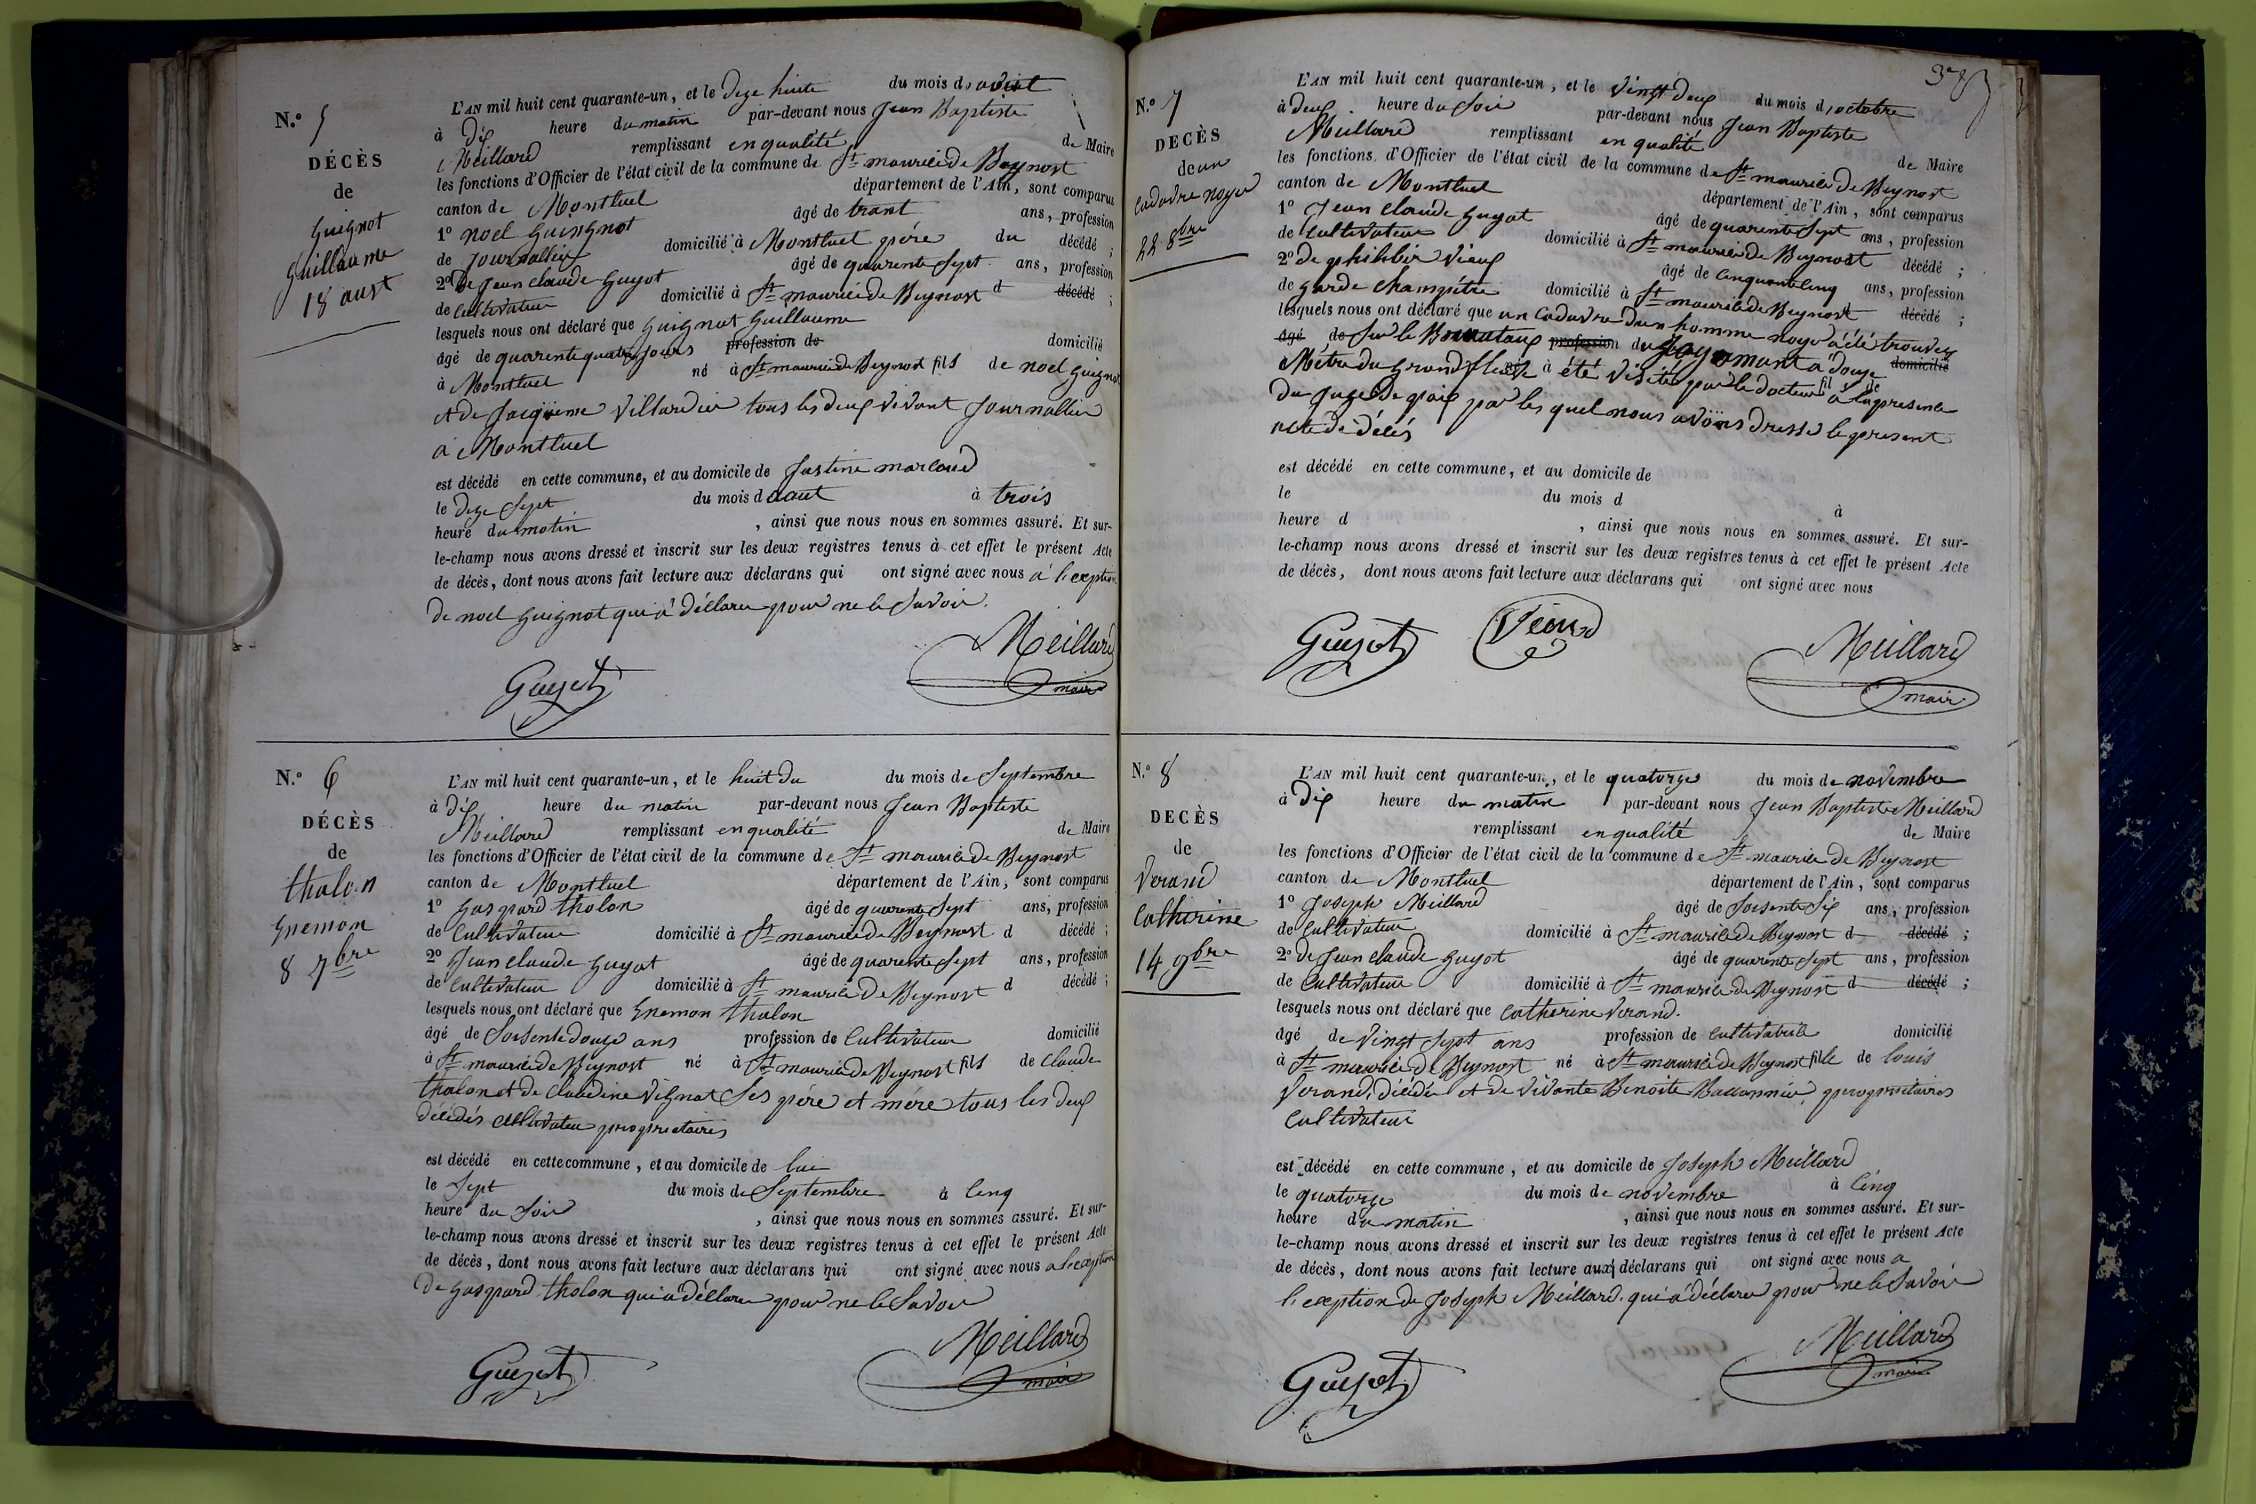 N.° 5
DÉCÈS
de
Guignot
Guillaume
18 aust
L'AN mil huit cent quarante-un, et le dize huite du mois d aoust
à dix heure du matin par-devant nous Jean Baptiste
Meillard remplissant en qualité de Maire
les fonctions d'Officier de l'état civil de la commune de St maurice de Beynost
canton de Montluel département de l'Ain, sont comparus
1° noel Guignot âgé de trant ans, profession
de journallier domicilié à Montluel père du décédé ;
2° De Jean claude Guyot âgé de quarente Sept ans, profession
de Cultivateur domicilié à St maurice de Beynost d décédé ;
lesquels nous ont déclaré que Guignot Guillaume
âgé de quarente quatre jours profession de domicilié
à Montluel né à St maurice de Beynost fils de noel Guignot
et de Jacqueme Villardier tous les deux vivant Journallier
à Montluel
est décédé en cette commune, et au domicile de Justine marland
le dize Sept du mois d aaut à trois
heure du matin , ainsi que nous nous en sommes assuré. Et sur-
le-champ nous avons dressé et inscrit sur les deux registres tenus à cet effet le présent Acte
de décès, dont nous avons fait lecture aux déclarans qui ont signé avec nous à l'exeption
de noel Guignot qui a déclarer pour ne le Savoir.
Meillard
maire
Guyot
N.° 6
DÉCÈS
de
tholon
Enemon
8 7bre
L'AN mil huit cent quarante-un, et le huit du du mois de Septembre
à dix heure du matin par-devant nous Jean Baptiste
Meillard remplissant en qualité de Maire
les fonctions d'Officier de l'état civil de la commune de St maurice de Beynost
canton de Montluel département de l'Ain, sont comparus
1° Gaspard tholon âgé de quarente Sept ans, profession
de Cultivateur domicilié à St maurice de Beynost d décédé ;
2° Jean claude Guyot âgé de quarente Sept ans, profession
de Cultivateur domicilié à St maurice de Beynost d décédé ;
lesquels nous ont déclaré que Enemon tholon
âgé de Soisente douze ans profession de Cultivateur domicilié
à St maurice de Beynost né à St maurice de Beynost fils de Claude
tholon et de Claudine Vignat Ses père et mère tous les deux
décédés cultivateur proprietaires
est décédé en cette commune, et au domicile de lui
le Sept du mois de Septembre à Cinq
heure du Soir , ainsi que nous nous en sommes assuré. Et sur-
le-champ nous avons dressé et inscrit sur les deux registres tenus à cet effet le présent Acte
de décès, dont nous avons fait lecture aux déclarans qui ont signé avec nous a l'exeption
De Gaspard tholon qui a déclarer pour ne le Savoir
Meillard
maire
Guyot
N.° 7
DECÈS
de un
Cadavre noyer
22 8bre
L'AN mil huit cent quarante-un, et le vingt deux du mois d octobre
à deux heure du Soir par-devant nous Jean Baptiste
Meillard remplissant en qualité de Maire
les fonctions d'Officier de l'état civil de la commune de St maurice De Beynost
canton de Montluel département de l'Ain, sont comparus
1° Jean claude Guyot âgé de quarente Sept ans, profession
de Cultivateur domicilié à St maurice de Beynost décédé ;
2° de philibir Vieux âgé de Cinquante Cinq ans, profession
de Garde champêtre domicilié à St maurice de Beynost décédé ;
lesquels nous ont déclaré que un Cadavre d'un homme noyer a été trouver
âgé de Sur le profession du à douze domicilié
Mètre du Grand fleuve né à été visiter par le docteur fil à la presence de
Du juge De paix par les quel nous avons dressé le present
acte de décès
est décédé en cette commune, et au domicile de
le du mois d à
heure d , ainsi que nous nous en sommes assuré. Et sur-
le-champ nous avons dressé et inscrit sur les deux registres tenus à cet effet le présent Acte
de décès, dont nous avons fait lecture aux déclarans qui ont signé avec nous
Guyot Vieux Meillard
maire
N.° 8
DECÈS
de
Verand
Catherine
14 9bre
L'AN mil huit cent quarante-un, et le quatorze du mois de novembre
à dix heure du matin par-devant nous Jean Baptiste Meillard
remplissant en qualité de Maire
les fonctions d'Officier de l'état civil de la commune de St maurice de Beynost
canton de Montluel département de l'Ain, sont comparus
1° Joseph Meillard âgé de Soisente Six ans, profession
de Cultivateur domicilié à St maurice de Beynost d décédé ;
2° de Jean claude Guyot âgé de quarente Sept ans, profession
de Cultivateur domicilié à St maurice de Beynost d décédé ;
lesquels nous ont déclaré que Catherine Verand.
âgé de vingt Sept ans profession de Cultivatrice domicilié
à St maurice de Beynost né à St maurice de Beynost fille de louis
Verand, Décédé et de vivante Benoite proprietaires
Cultivateur
est décédé en cette commune, et au domicile de Joseph Meillard
le quatorze du mois de novembre à Cinq
heure du matin , ainsi que nous nous en sommes assuré. Et sur-
le-champ nous avons dressé et inscrit sur les deux registres tenus à cet effet le présent Acte
de décès, dont nous avons fait lecture aux déclarans qui ont signé avec nous a
l'exeption de Joseph Meillard. qui a déclarer pour ne le Savoir
Meillard
maire
Guyot